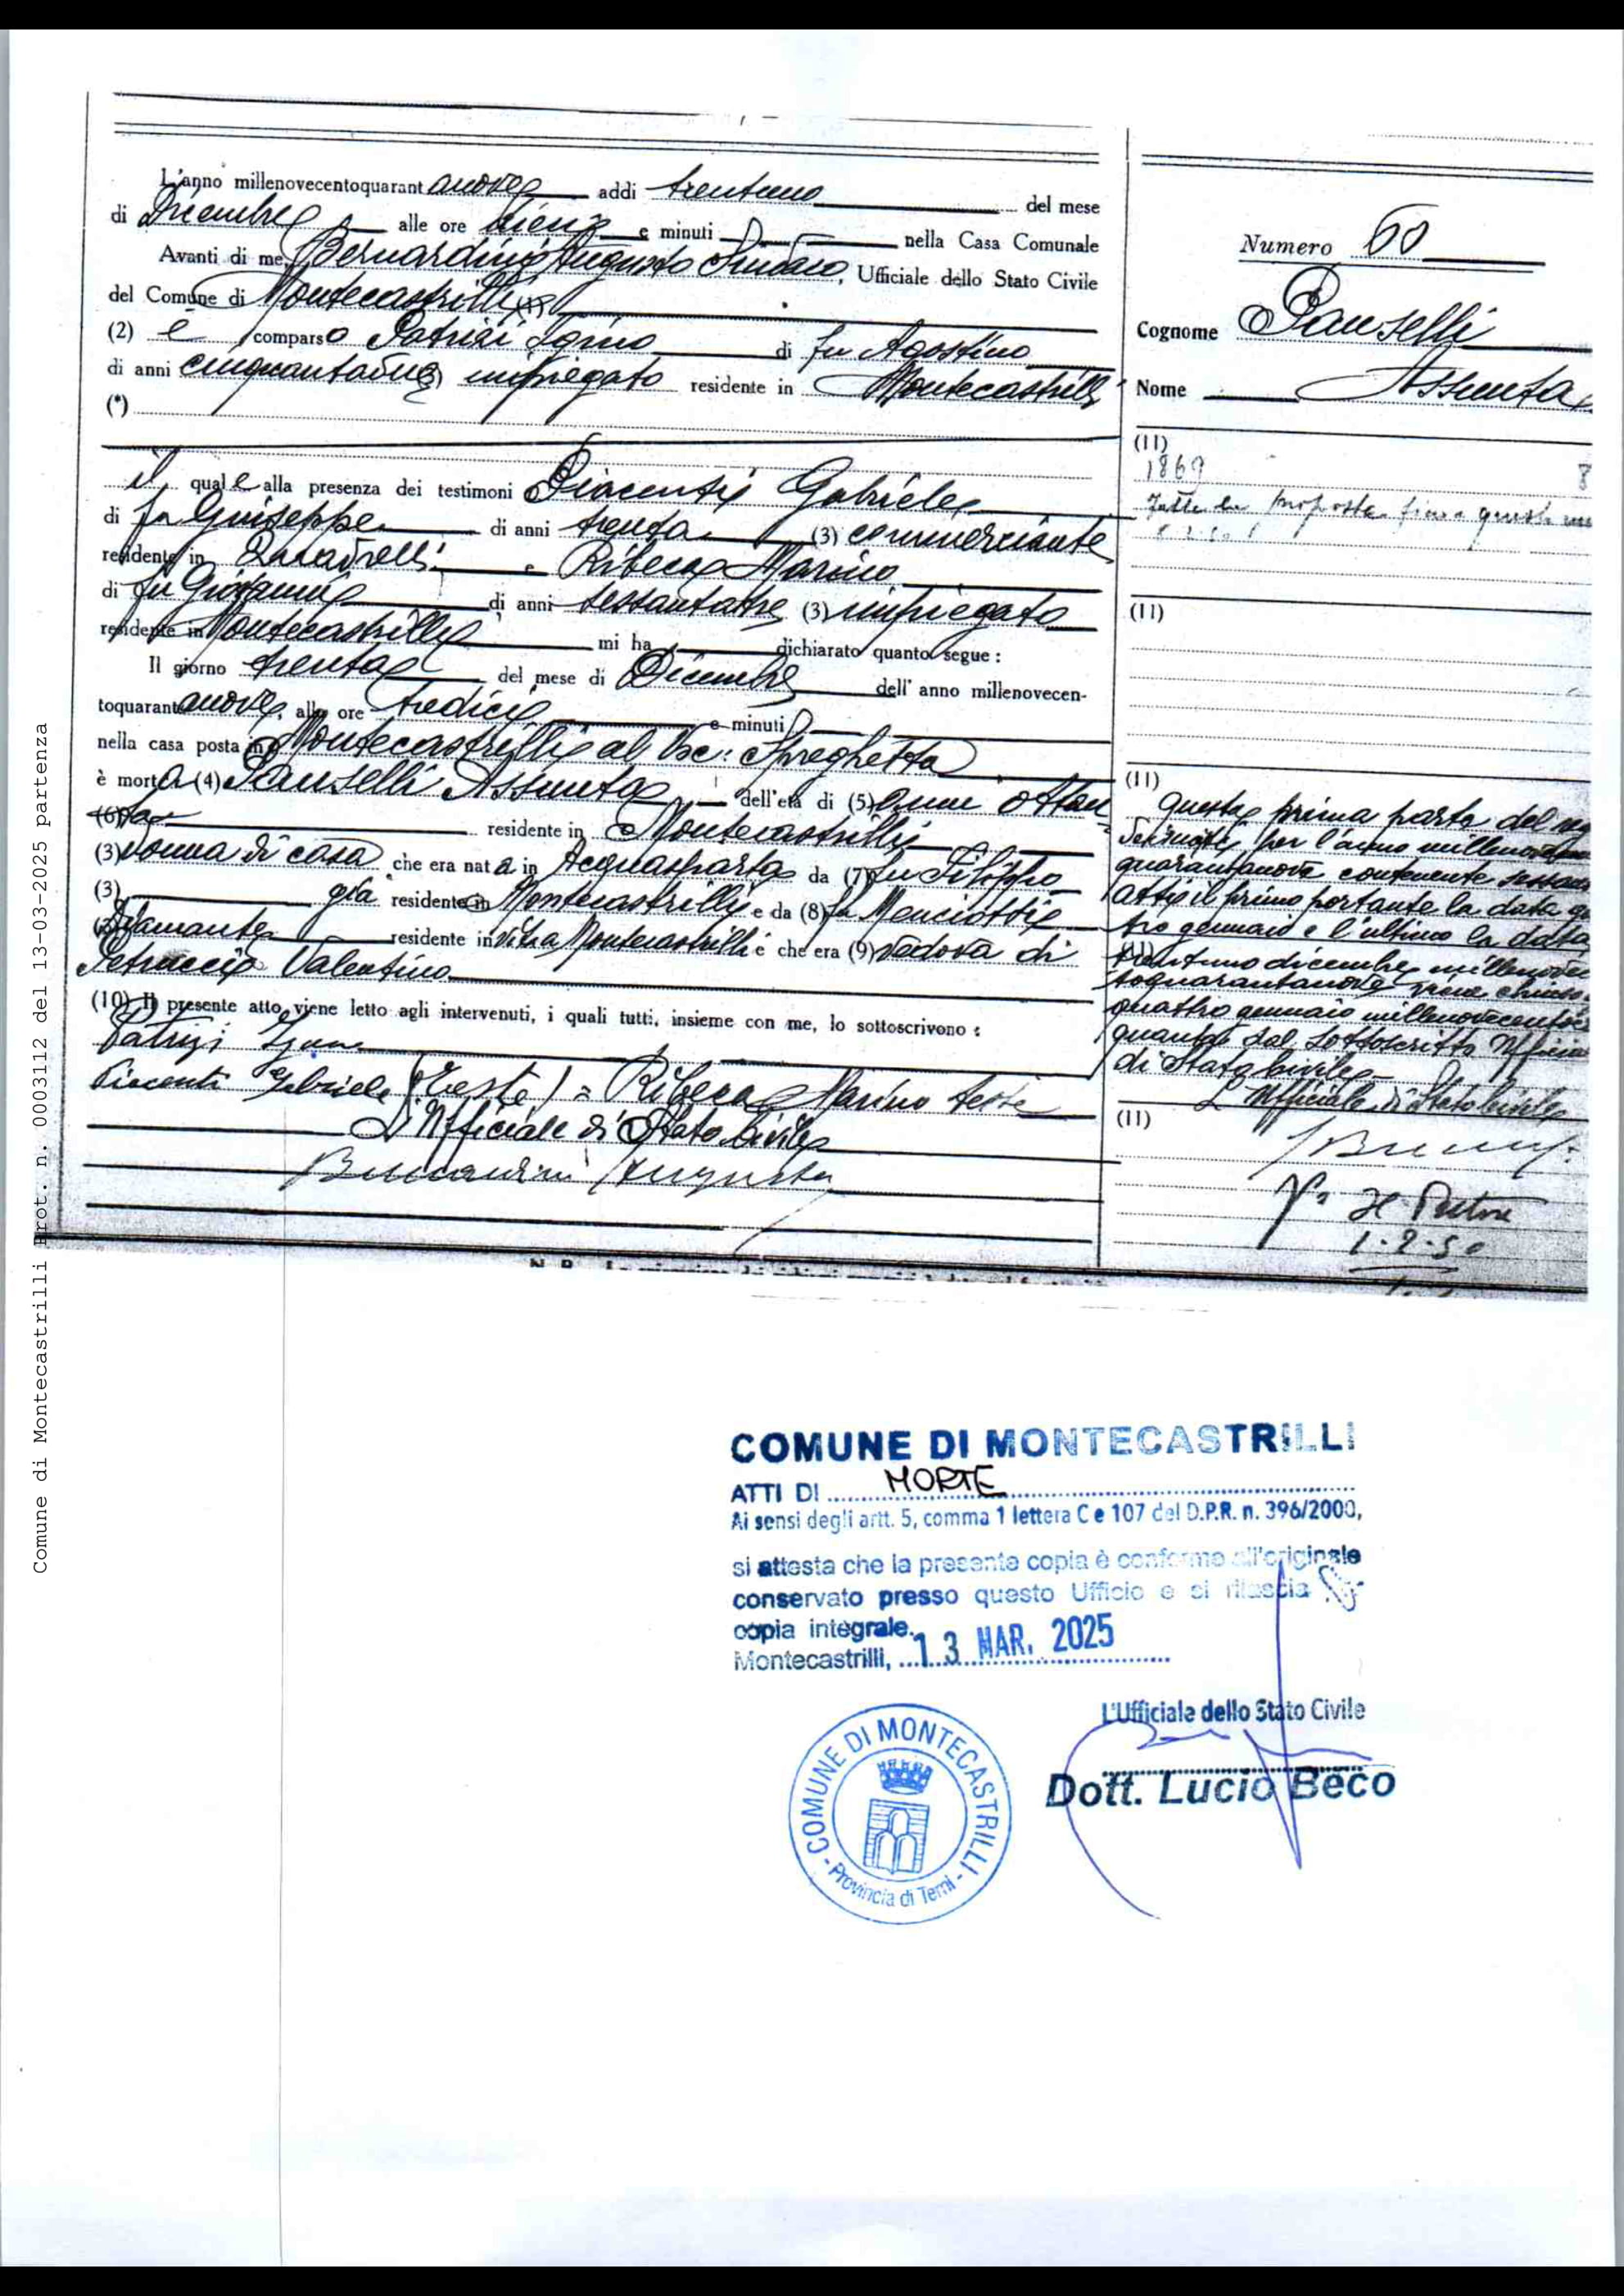 L'anno millenovecentoquarantanove addi trentuno del mese
di Dicembre alle ore e minuti nella Casa Comunale
Avanti di me Bernardini Augusto Sindaco, Ufficiale dello Stato Civile
del Comune di Montecastrilli (1)
(2) è comparso Patrizi Igino di fu Agostino
di anni cinquantadue impiegato residente in Montecastrilli
(*)
il quale alla presenza dei testimoni Piacenti Gabriele
di fu Giuseppe di anni trenta (3) commerciante
residente in Quadrelli e Ribeca Marino
di fu Giovanni di anni sessantatre (3) impiegato
residente in Montecastrilli mi ha dichiarato quanto segue :
Il giorno trenta del mese di Dicembre dell' anno millenovecen-
toquarantanove, alle ore tredici e minuti
nella casa posta in Montecastrilli al Voc: Spreghetta
è morta (4) Panselli Assunta dell'età di (5) anni ottan
(6) ta residente in Montecastrilli
(3) donna di casa che era nata in Acquasparta da (7) fu Filippo
(3) già residente in Montecastrilli e da (8) fu Menciotti
(3) Diamante residente in vita Montecastrilli e che era (9) vedova di
Petrucci Valentino
(10) Il presente atto viene letto agli intervenuti, i quali tutti, insieme con me, lo sottoscrivono :
Patrizi Igino
Piacenti Gabriele (teste) = Ribeca Marino teste
L'Ufficiale di Stato Civile
Bernardini Augusto
Numero 60
Cognome Panselli
Nome Assunta
(11)
1869 8
Fatte le proposte fino a questo
(11)
(11)
Questa prima parte del
per l'anno
quarantanove contenente
atti il primo portante la data
gennaio e l'ultimo la data
(11)
trentuno dicembre
toquarantanove viene chiuso
quattro gennaio
quanta dal sottoscritto
di Stato Civile
L'Ufficiale di Stato Civile
(11)
Il Pretore
1-2-50
Comune di Montecastrilli Prot. n. 0003112 del 13-03-2025 partenza
COMUNE DI MONTECASTRILLI
ATTI DI MORTE
Ai sensi degli artt. 5, comma 1 lettera C e 107 del D.P.R. n. 396/2000,
si attesta che la presente copia è conforme all'originale
conservato presso questo Ufficio e si rilascia
copia integrale.
Montecastrilli, 13 MAR. 2025
L'Ufficiale dello Stato Civile
Dott. Lucio Beco
COMUNE DI MONTECASTRILLI
- Provincia di Terni -